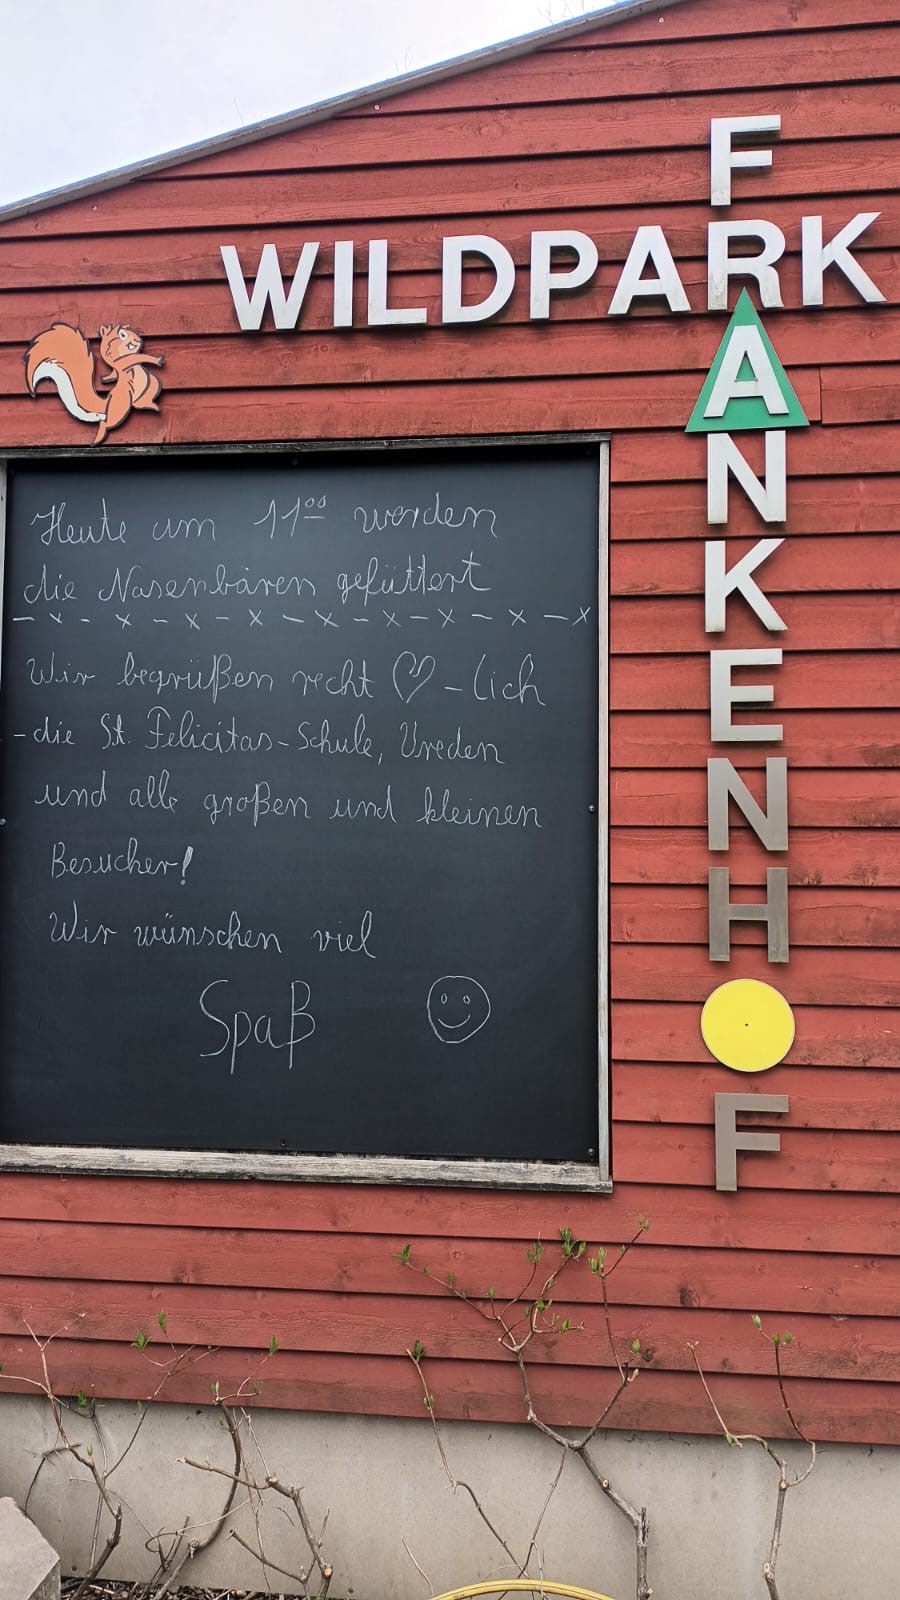 WILDPARK
FRANKENHOF
Heute um 11⁰⁰ werden
die Nasenbären gefüttert
- x - x - x - x - x - x - x - x - x
Wir begrüßen recht ♡ - lich
- die St. Felicitas-Schule, Vreden
und alle großen und kleinen
Besucher!
Wir wünschen viel
Spaß ☺